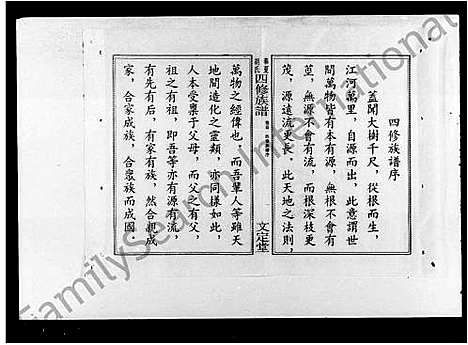 四修族譜序
蓋聞大樹千尺，從根而生，
江河萬里，自源而出，此意謂世
間萬物皆有本有源，無根不會有
莖，無源不會有流，而根深枝更
茂，源遠流更長，此天地之法則，
四修族譜
文定堂
萬物之經偉也，而吾輩人等雖天
地間造化之靈類，亦同樣如此，
人本受稟于父母，而父之有父，
祖之有祖，即吾等亦有源有流，
有先有后，有家有族，然合親成
家，合家成族，合眾族而成國
FamilySearch International